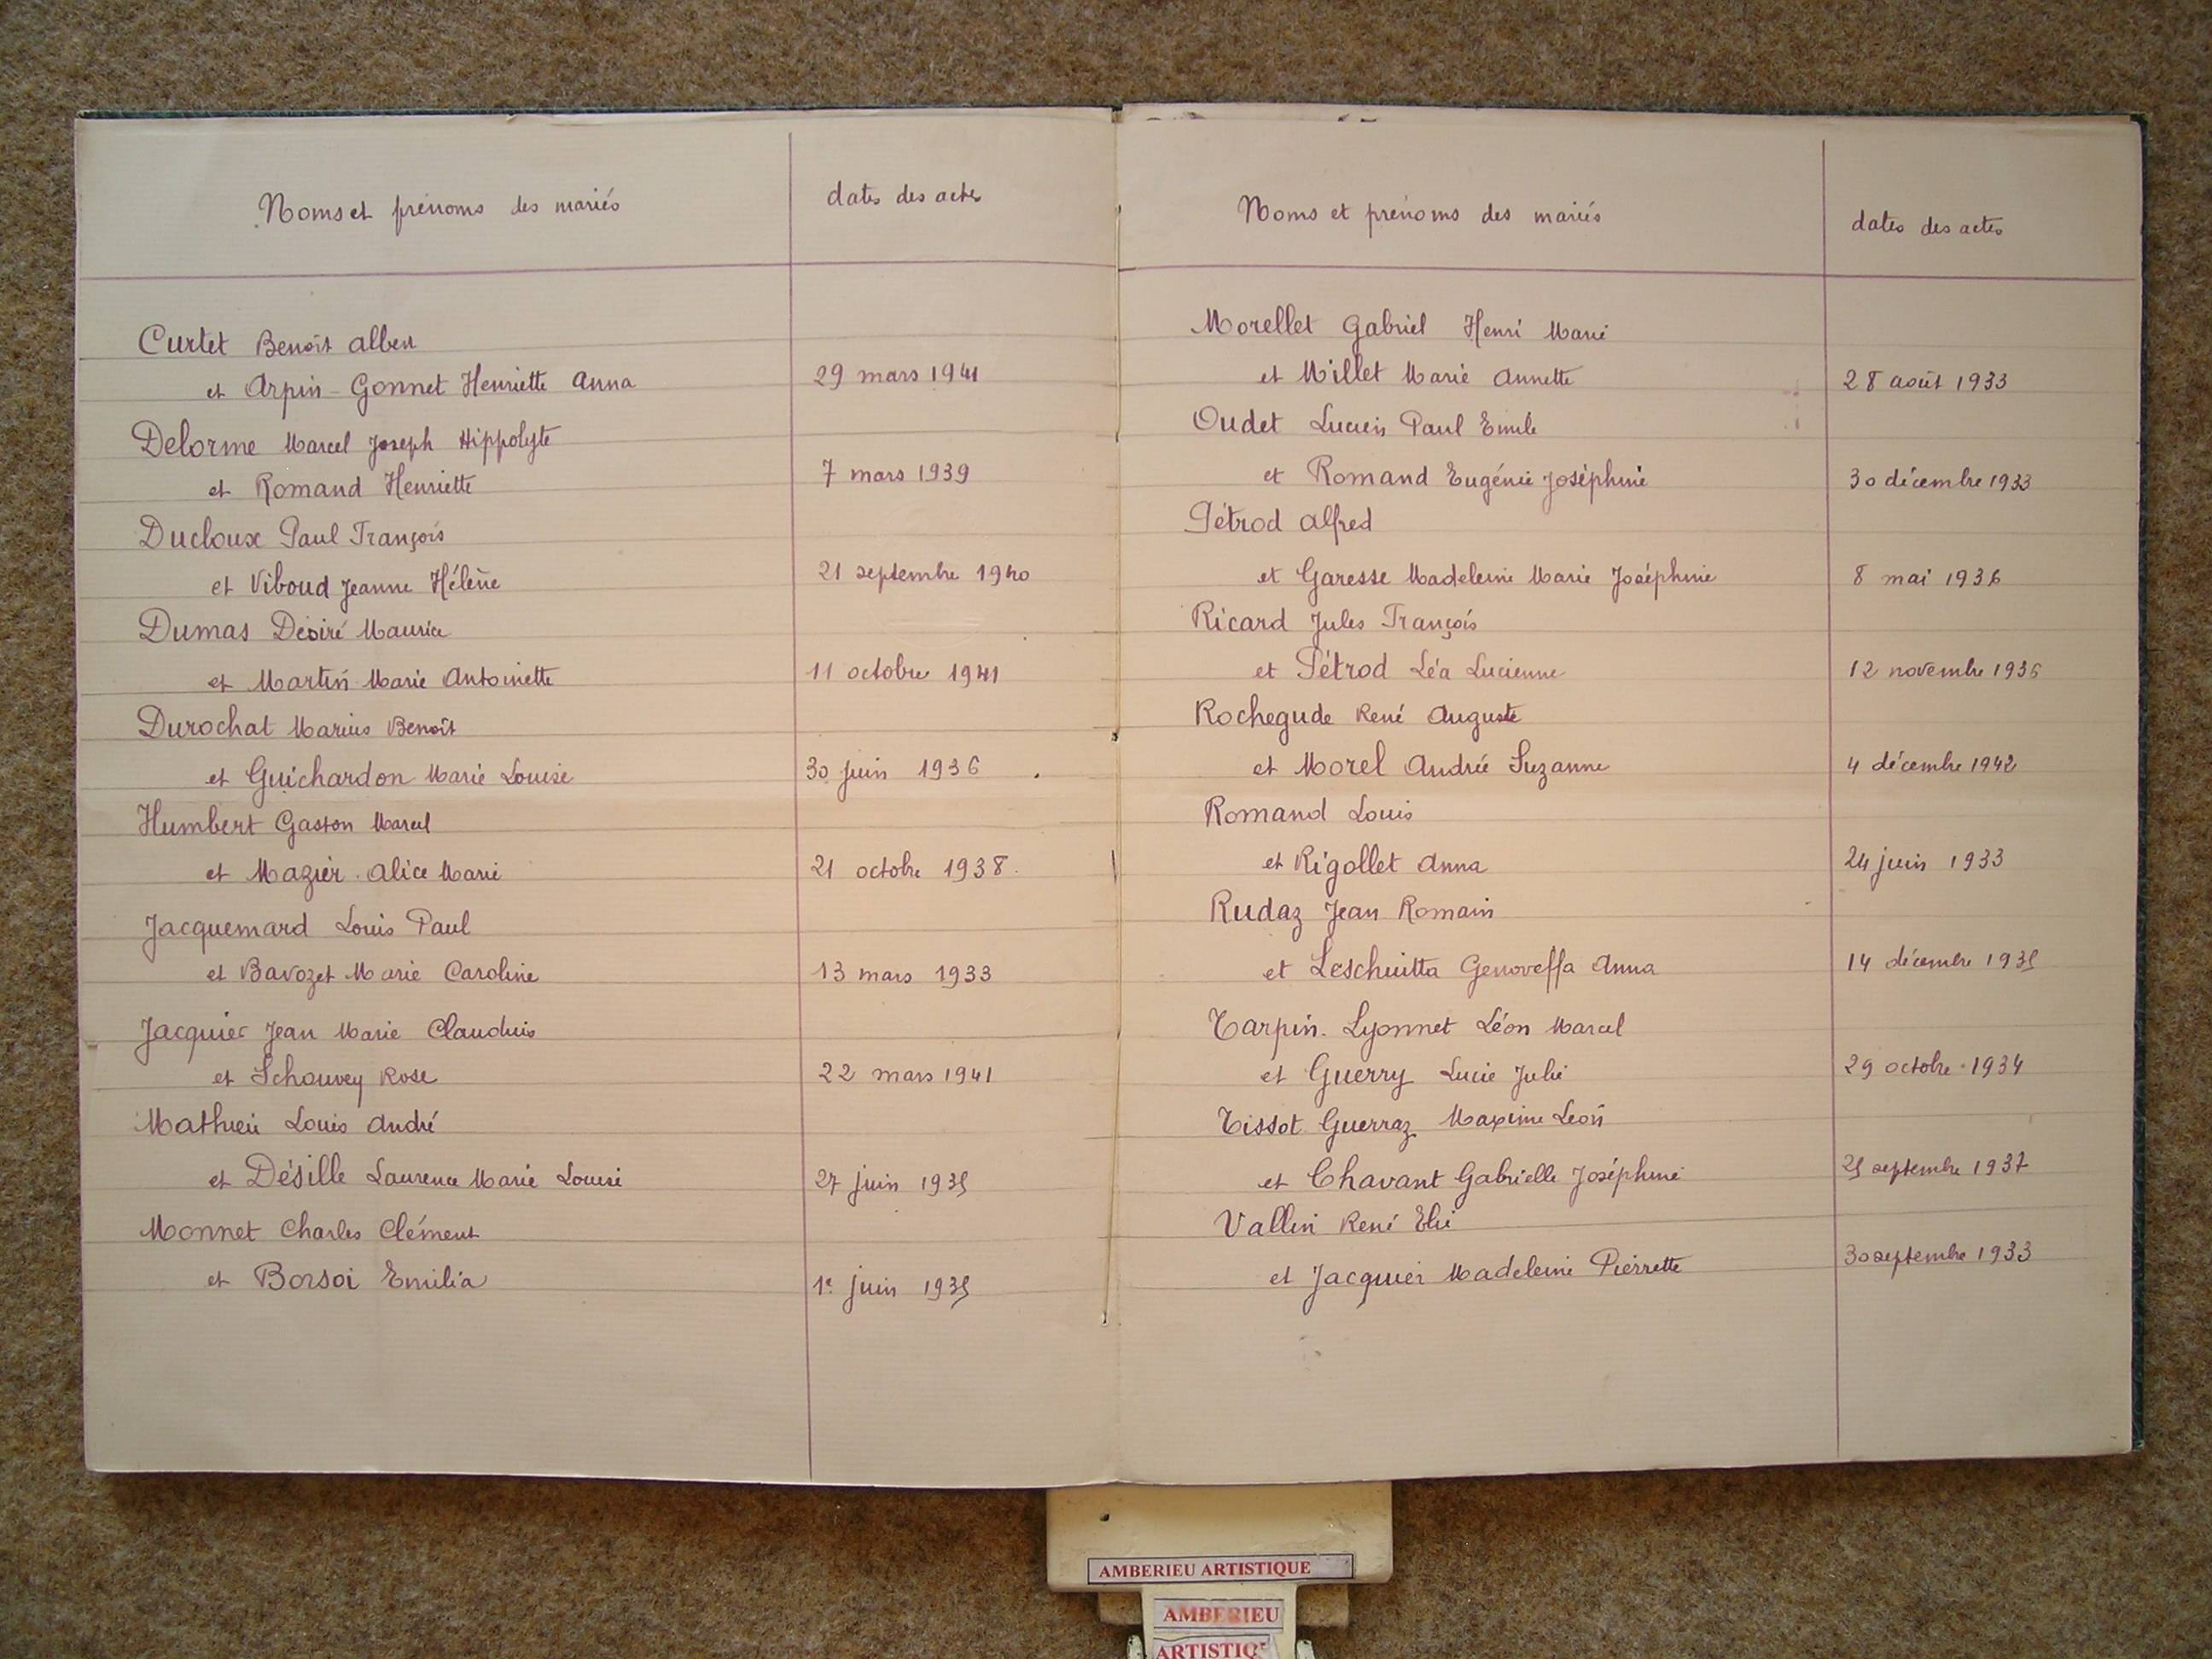 Noms et prénoms des mariés dates des actes
Curtet Benoît Albert
et Arpin-Gonnet Henriette Anna 29 mars 1941
Delorme Marcel Joseph Hippolyte
et Romand Henriette 7 mars 1939
Ducloux Paul François
et Viboud Jeanne Hélène 21 septembre 1940
Dumas Désiré Maurice
et Martin Marie Antoinette 11 octobre 1941
Durochat Marius Benoît
et Guichardon Marie Louise 30 juin 1936
Humbert Gaston Marcel
et Mazier Alice Marie 21 octobre 1938
Jacquemard Louis Paul
et Bavozet Marie Caroline 13 mars 1933
Jacquier Jean Marie Claudius
et Schouvey Rose 22 mars 1941
Mathieu Louis André
et Désille Laurence Marie Louise 27 juin 1935
Monnet Charles Clément
et Borsoi Emilia 1e juin 1935
Noms et prénoms des mariés dates des actes
Morellet Gabriel Henri Marie
et Millet Marie Annette 28 août 1933
Oudet Lucien Paul Emile
et Romand Eugénie Joséphine 30 décembre 1933
Pétrod Alfred
et Garesse Madeleine Marie Joséphine 8 mai 1936
Ricard Jules François
et Pétrod Léa Lucienne 12 novembre 1936
Rochegude René Auguste
et Morel Andrée Suzanne 4 décembre 1942
Romand Louis
et Rigollet Anna 24 juin 1933
Rudaz Jean Romain
et Leschiutta Genoveffa Anna 14 décembre 1935
Tarpin-Lyonnet Léon Marcel
et Guerry Lucie Julie 29 octobre 1934
Tissot Guerraz Maxime Léon
et Chavant Gabrielle Joséphine 25 septembre 1937
Vallin René Elie
et Jacquier Madeleine Pierrette 30 septembre 1933
AMBERIEU ARTISTIQUE
AMBERIEU
ARTISTIQ